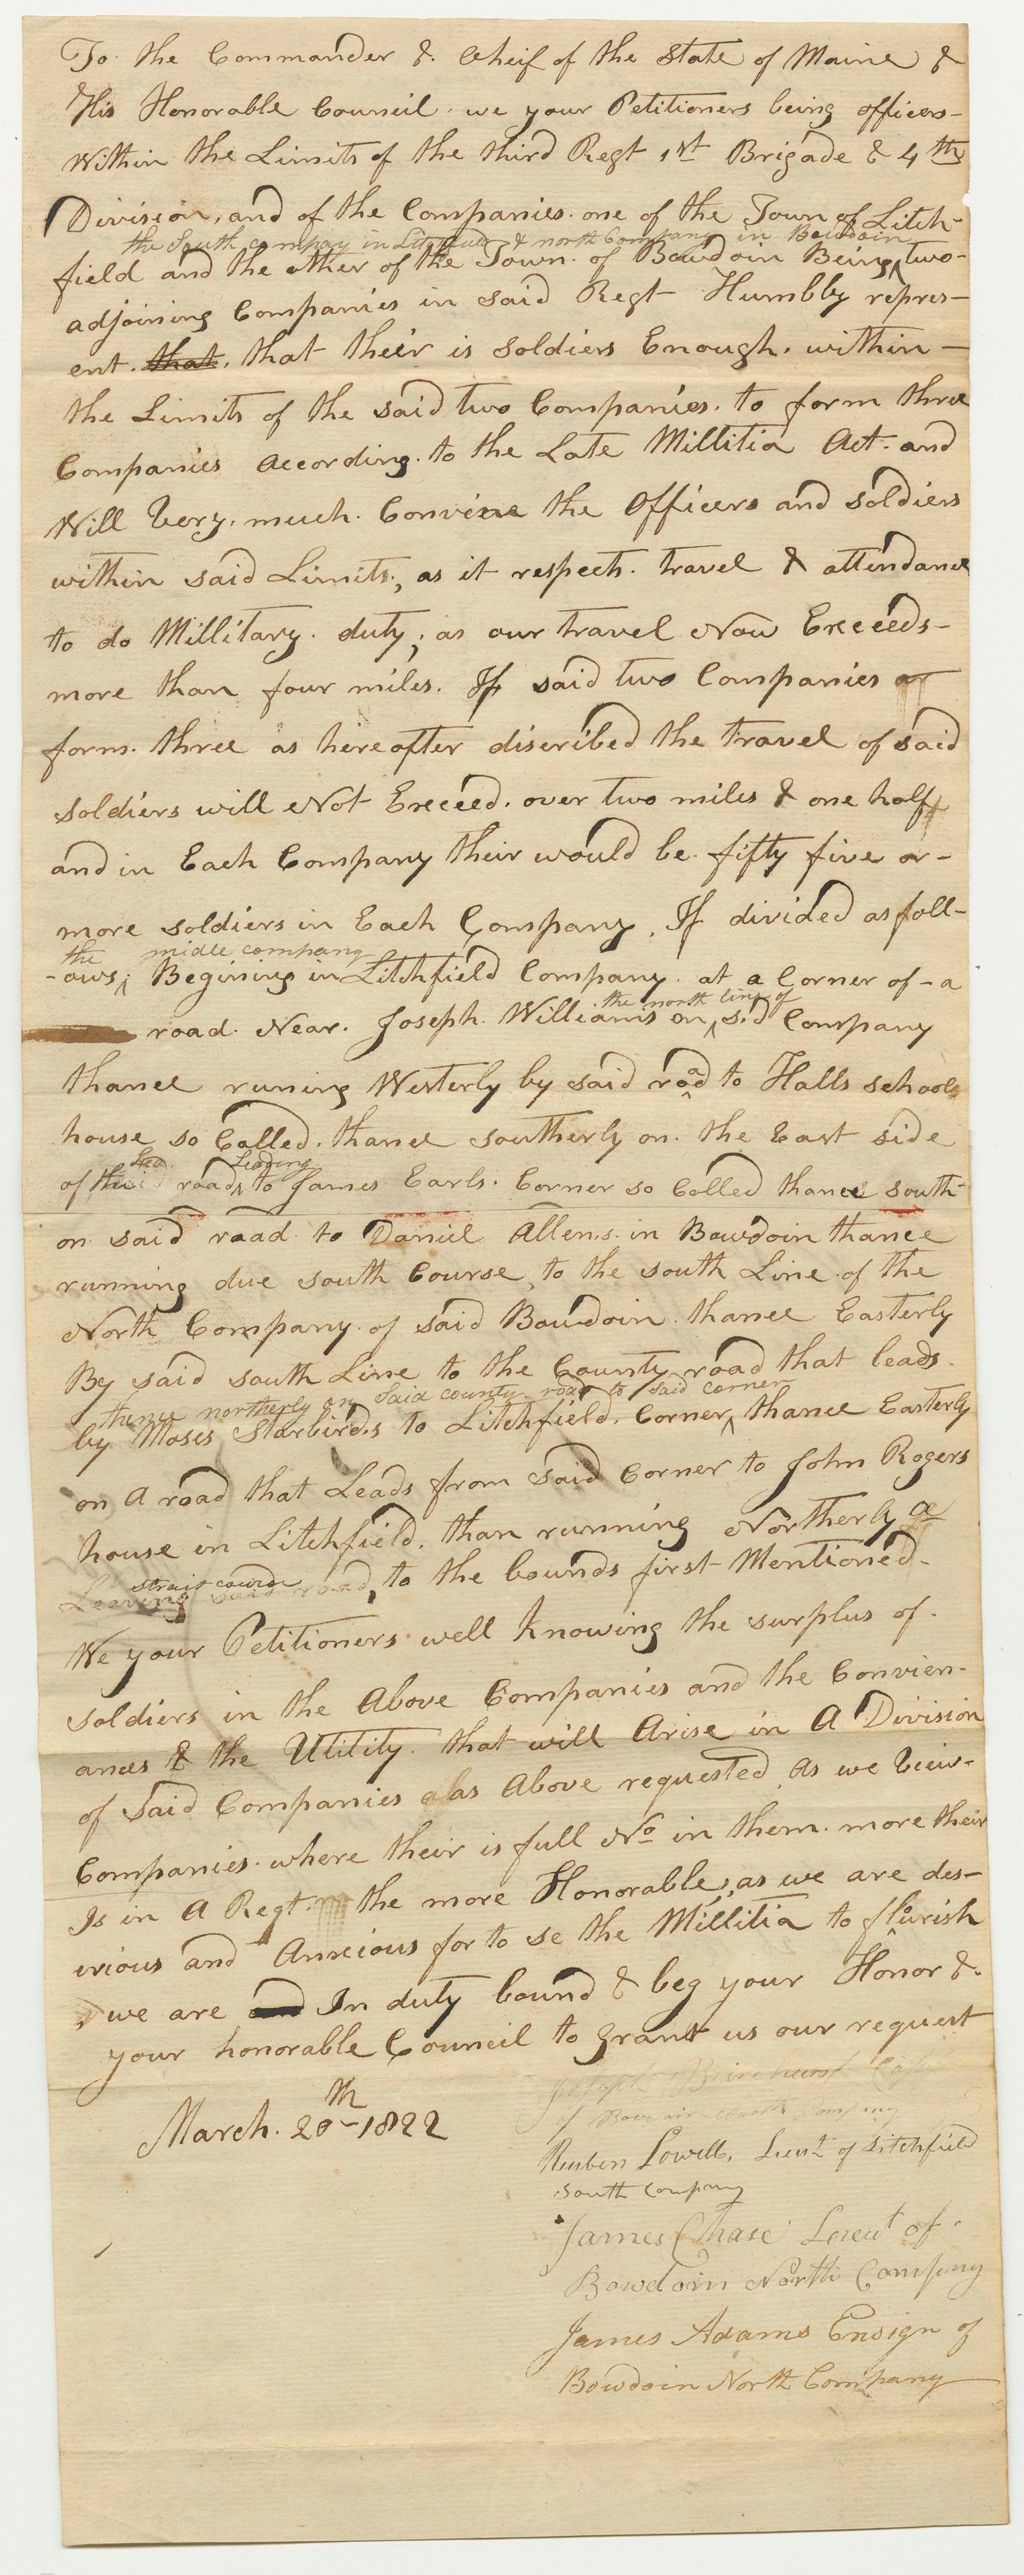 To the Commander & Cheif of the State of Maine &
His Honorable Council we your Petitioners being officers
Within the Limits of the third Regt 1st Brigade & 4th
Division, and of the Companies one of the Town of Litch-
the South company in Litchfield & north Company in Bowdoin
field and the other of the Town of Bowdoin Being two
adjoining Companies in said Regt Humbly repres-
ent that that their is soldiers Enough within
the Limits of the said two Companies to form three
Companies according to the Late Millitia Act and
Will Very much Convine the Officers and soldiers
within said Limits, as it respects travel & attendance
to do Millitary duty, as our travel Now Exceeds
more than four miles. If said two Companies
form three as hereafter discribed the travel of said
soldiers will Not Exceed over two miles & one half
and in Each Company their would be fifty five or
more soldiers in Each Company, If divided as foll-
the midle company
-ows; Begining in Litchfield Company at a Corner of a
the north line of
road Near Joseph Williams on sd Company
thance runing Westerly by said road to Halls school
house so Called thance southerly on the East side
Leading
of road to James Earls Corner so Called thance south
on said road to Daniel Allens in Bowdoin thance
running due south Course to the south Line of the
North Company of said Bowdoin thance Easterly
By said south Line to the County road that leads
thence northerly on said county road to said corner
by Moses Starbirds to Litchfield Corner thance Easterly
on A road that Leads from said Corner to John Rogers
house in Litchfield than running Northerly a
strait course
Leaving said road, to the bounds first Mentioned
We your Petitioners well Knowing the surplus of
soldiers in the Above Companies and the Convien-
ances & the Utility that will Arise in A Division
of said Companies as Above requested As we View
Companies where their is full No in them more their
Is in A Regt the more Honorable, as we are des-
irious and Anxious for to se the Millitia to flurish
we are and In duty bound & beg your Honor &
your honorable Council to grant us our request
March 20th 1822
Joseph
of Bowdoin north Company
Reuben Lowell, Lieut of Litchfield
south Company
James Chase Lieut of
Bowdoin North Company
James Adams Ensign of
Bowdoin North Company